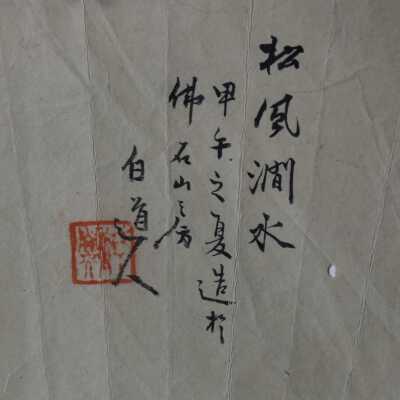 松风澗水
甲午之夏造於
佛石山之房
白道人